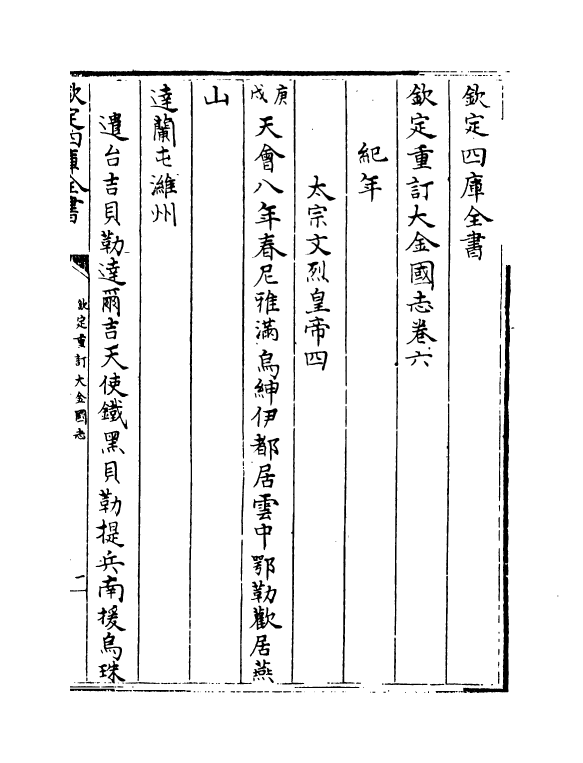 欽定四庫全書
欽定重訂大金國志卷六
紀年
太宗文烈皇帝四
庚戌天會八年春尼雅滿烏紳伊都居雲中鄂勒歡居燕
山
達蘭屯濰州
遣台吉貝勒達爾吉天使鐵黑貝勒提兵南援烏珠
欽定四庫全書
欽定重訂大金國志